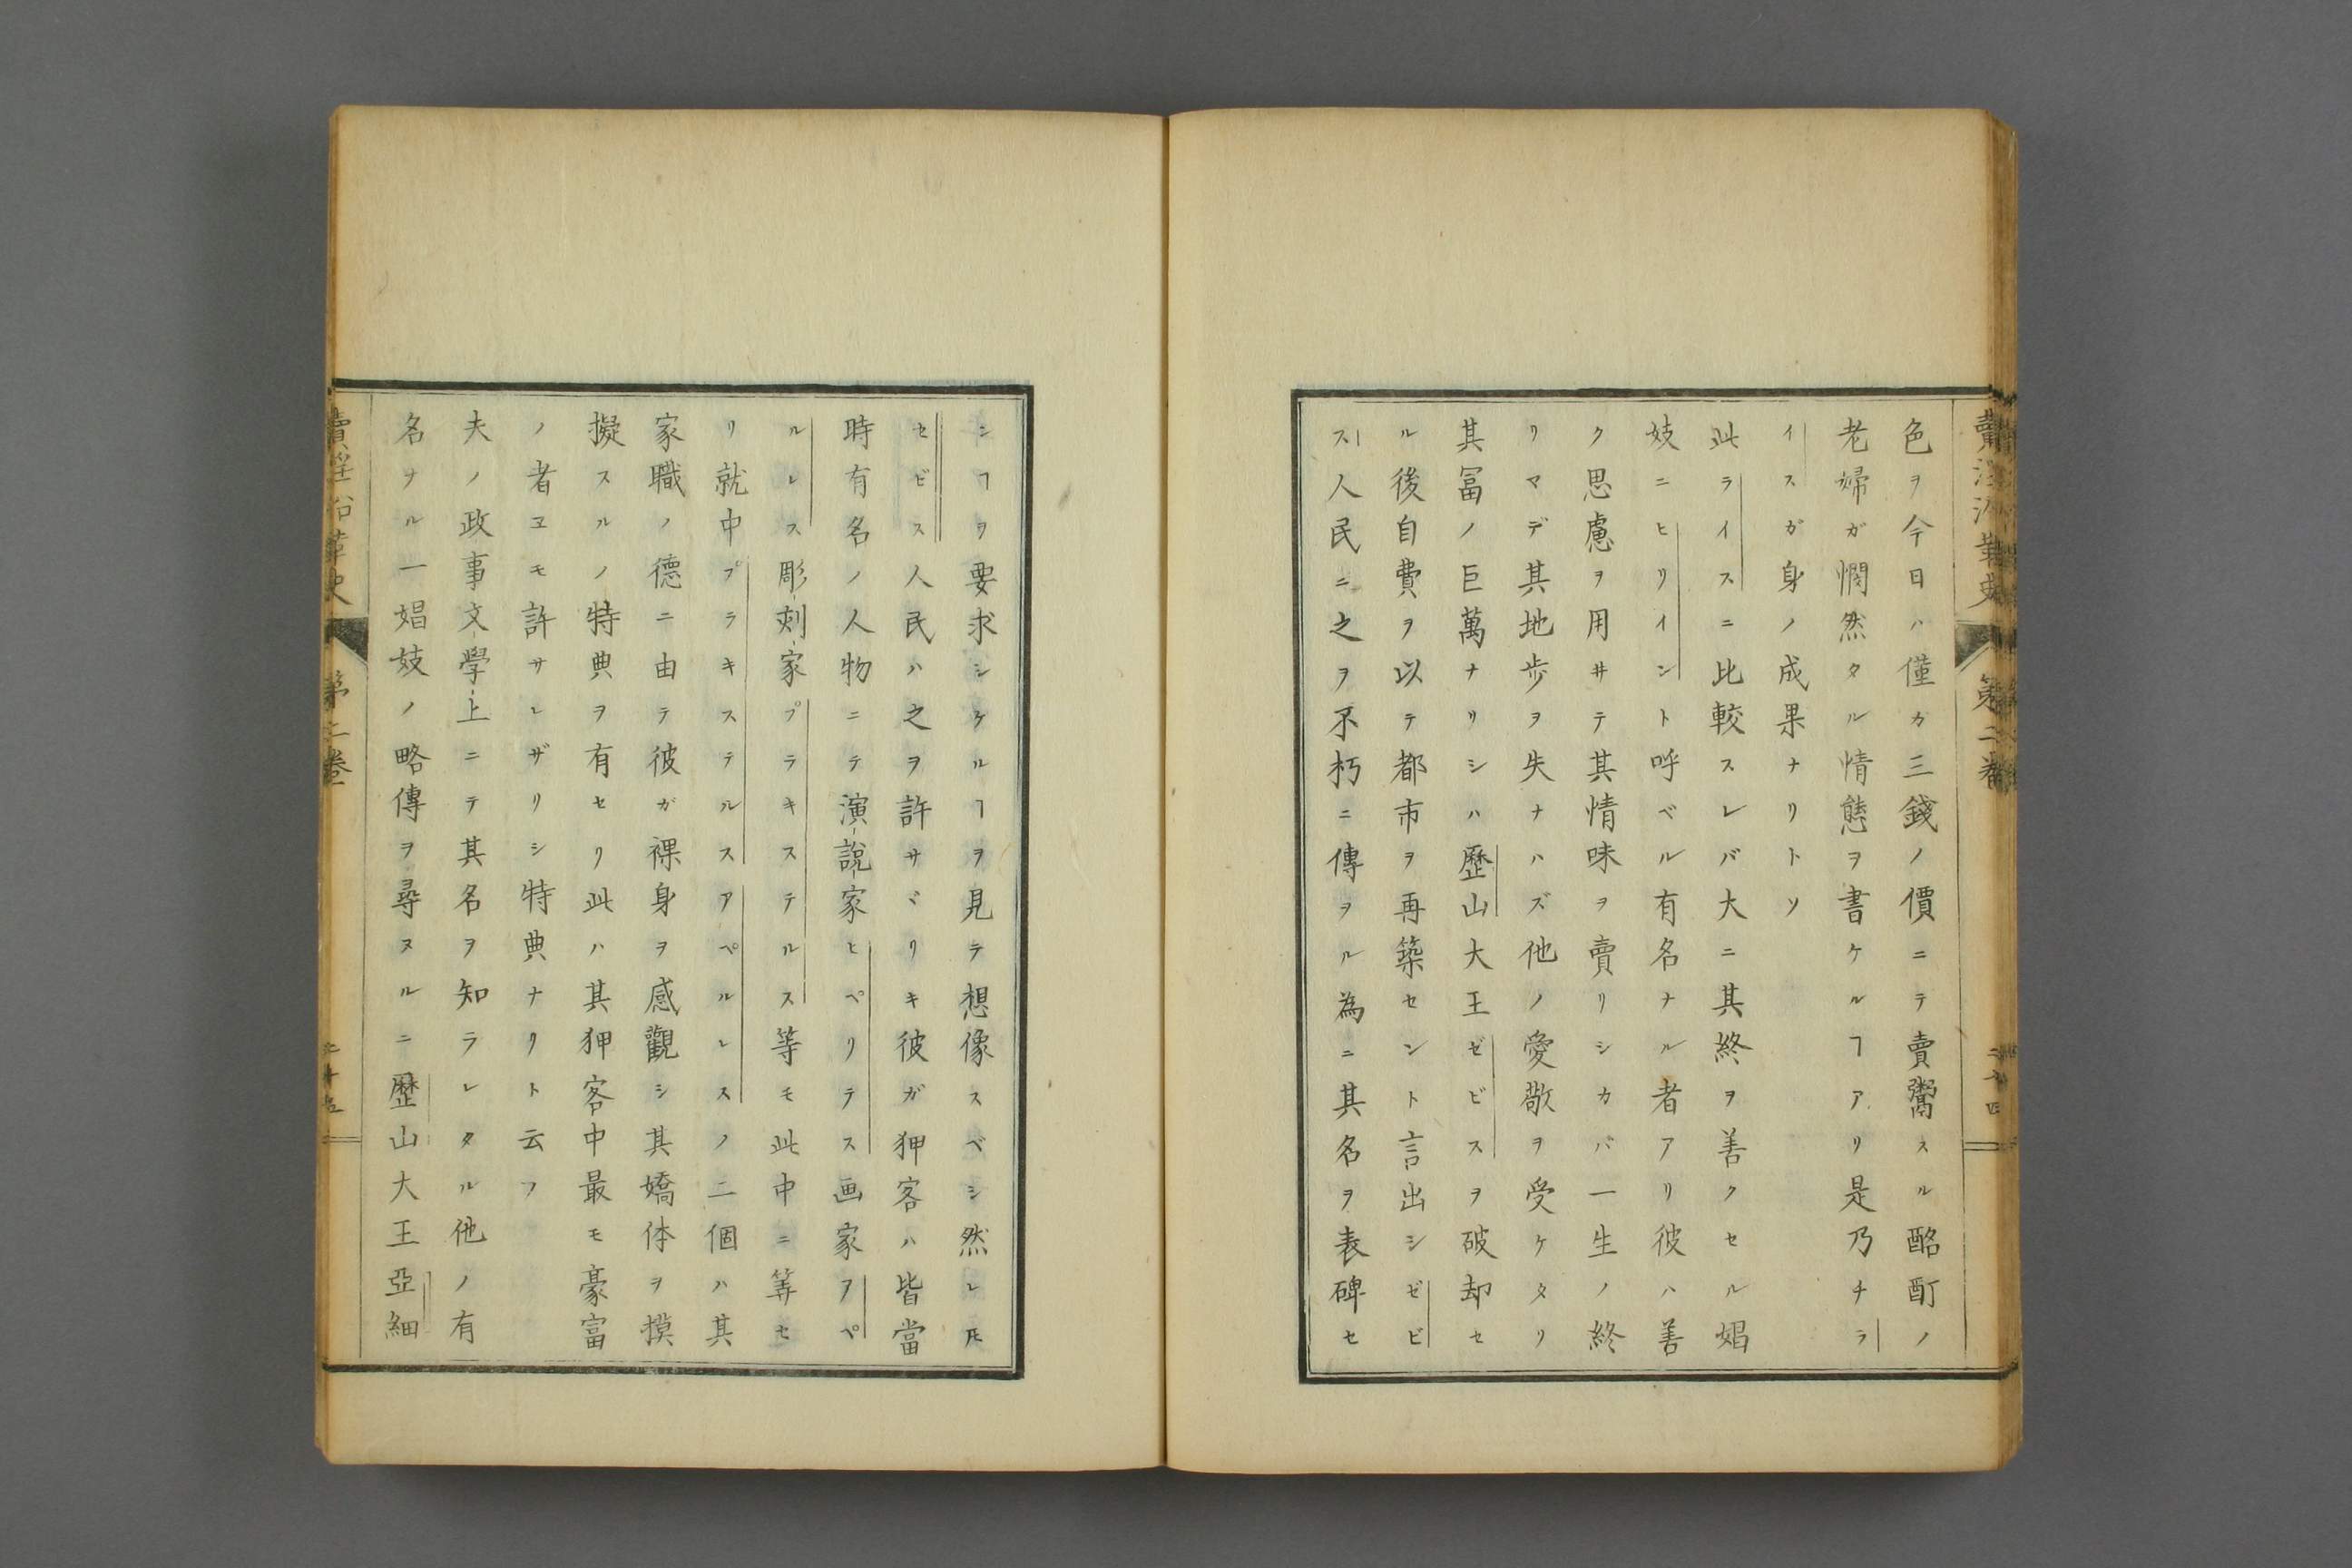 賣淫沿革史 第二巻 二十四
色ヲ今日ハ僅カ三錢ノ價ニテ賣鬻スル酩酊ノ
老婦ガ憫然タル情態ヲ書ケルヿアリ是乃チラ
イスガ身ノ成果ナリトソ
此ライスニ比較スレバ大ニ其終ヲ善クセル娼
妓ニヒリインント呼ベル有名ナル者アリ彼ハ善
ク思慮ヲ用井テ其情味ヲ賣リシカバ一生ノ終
リマデ其地歩ヲ失ナハズ他ノ愛敬ヲ受ケタリ
其冨ノ巨萬ナリシハ歷山大王ゼビスヲ破却セ
ル後自費ヲ以テ都市ヲ再築セント言出シゼビ
ス人民ニ之ヲ不朽ニ傳ヲル為ニ其名ヲ表碑セ
シヿヲ要求シケルヿヲ見テ想像スベシ然レ𪜈
セビス人民ハ之ヲ許サヾリキ彼ガ狎客ハ皆當
時有名ノ人物ニテ演説家ヒペリテス画家アペ
ルレス彫刻家プラキステルス等モ此中ニ算セ
リ就中プラキステルスアペルレスノ二個ハ其
家職ノ德ニ由テ彼ガ裸身ヲ感觀シ其嬌体ヲ摸
擬スルノ特典ヲ有セリ此ハ其狎客中最モ豪富
ノ者ヱモ許サレザリシ特典ナリト云フ
夫ノ政事文學上ニテ其名ヲ知ラレタル他ノ有
名ナル一娼妓ノ略傳ヲ尋ヌルニ歷山大王亞細
賣淫沿革史 第二巻 二十五